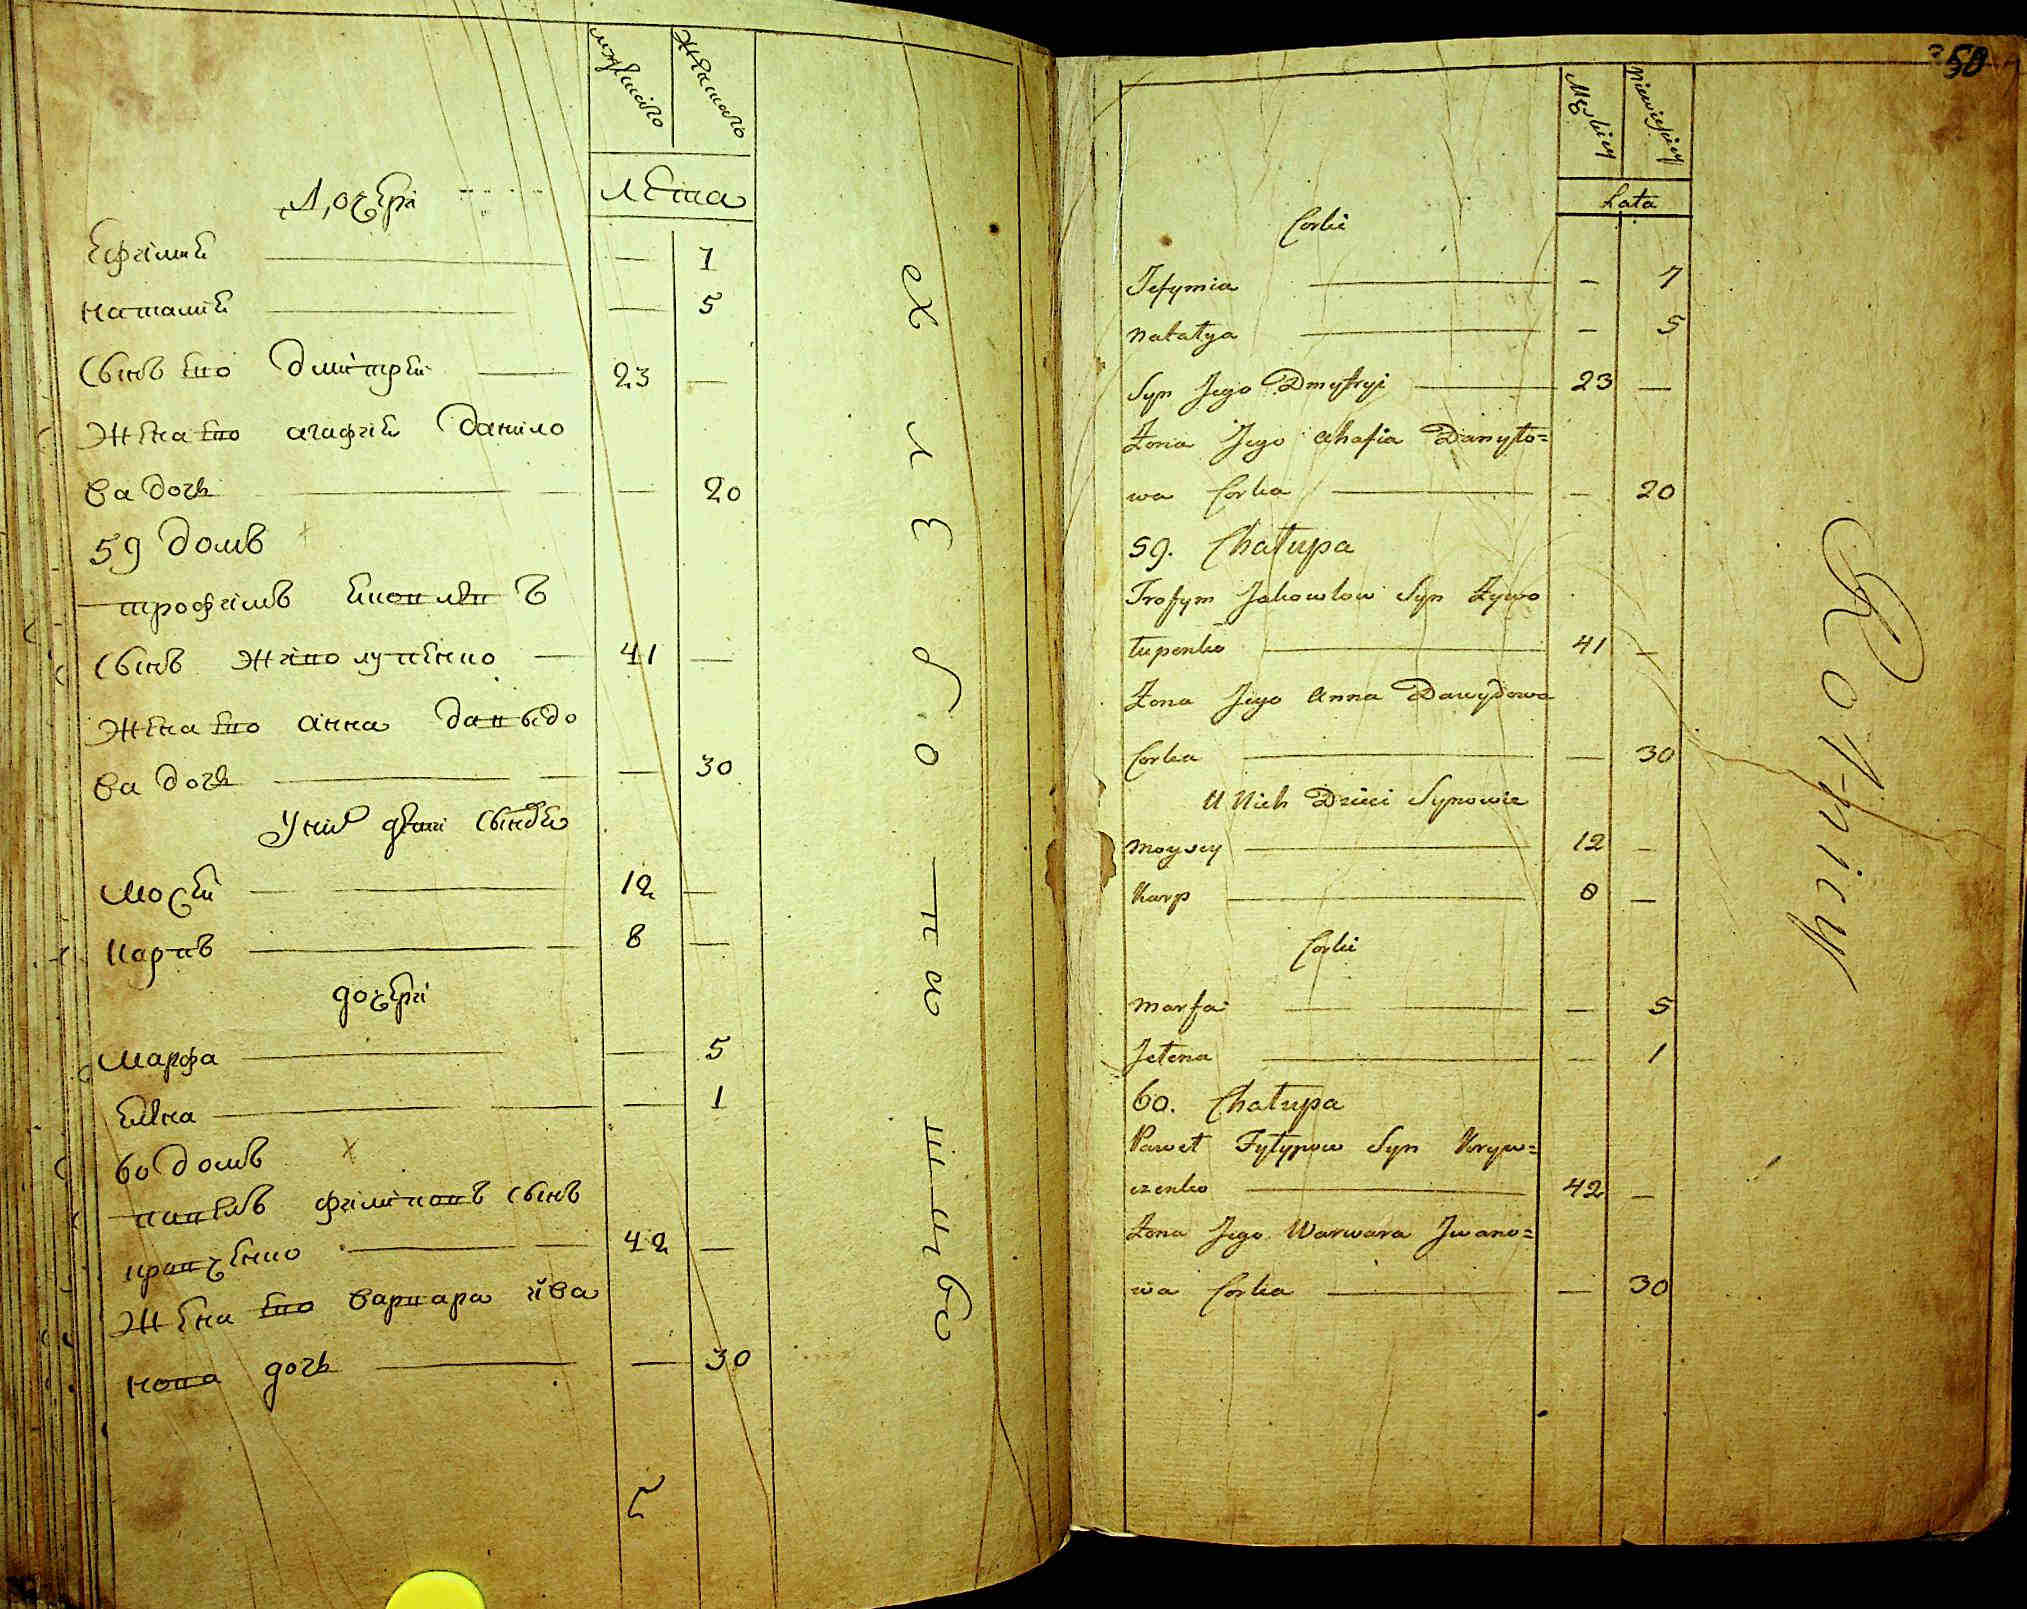 мужескаго
женскаго
лѣта
Дочери
Ефимия 7
наталия 5
Сынъ его Дмитрей 23
Жена его агафия Данило
ва дочь 20
59 домъ
трофимъ
сынъ 41
Жена его анна давыдо
ва дочь 30
У них дети сыновья
мосей 12
карпъ 8
дочери
марфа 5
елена 1
60 домъ
павелъ филиповъ сынъ
42
Жена его варвара ива
нова дочь 30
50
Męskiey
Niewieskiey
Lata
Corki
Jefymia — 7
Natałya — 5
Syn Jego Dmytryi 23 —
Żona Jego Ahafia Danyło=
wa Corka — 20
59. Chałupa
Trofym Jakowlow Syn Żywo
łupenko 41 —
Żona Jego Anna Dawydowa
Corka — 30
U Nich Dzieci Synowie
Moysey 12 —
Karp 8 —
Corki
Marfa — 5
Jełena — 1
60. Chałupa
Paweł Fyłypow Syn Kryw=
czenko 42 —
Żona Jego Warwara Jwano=
wa Corka — 30